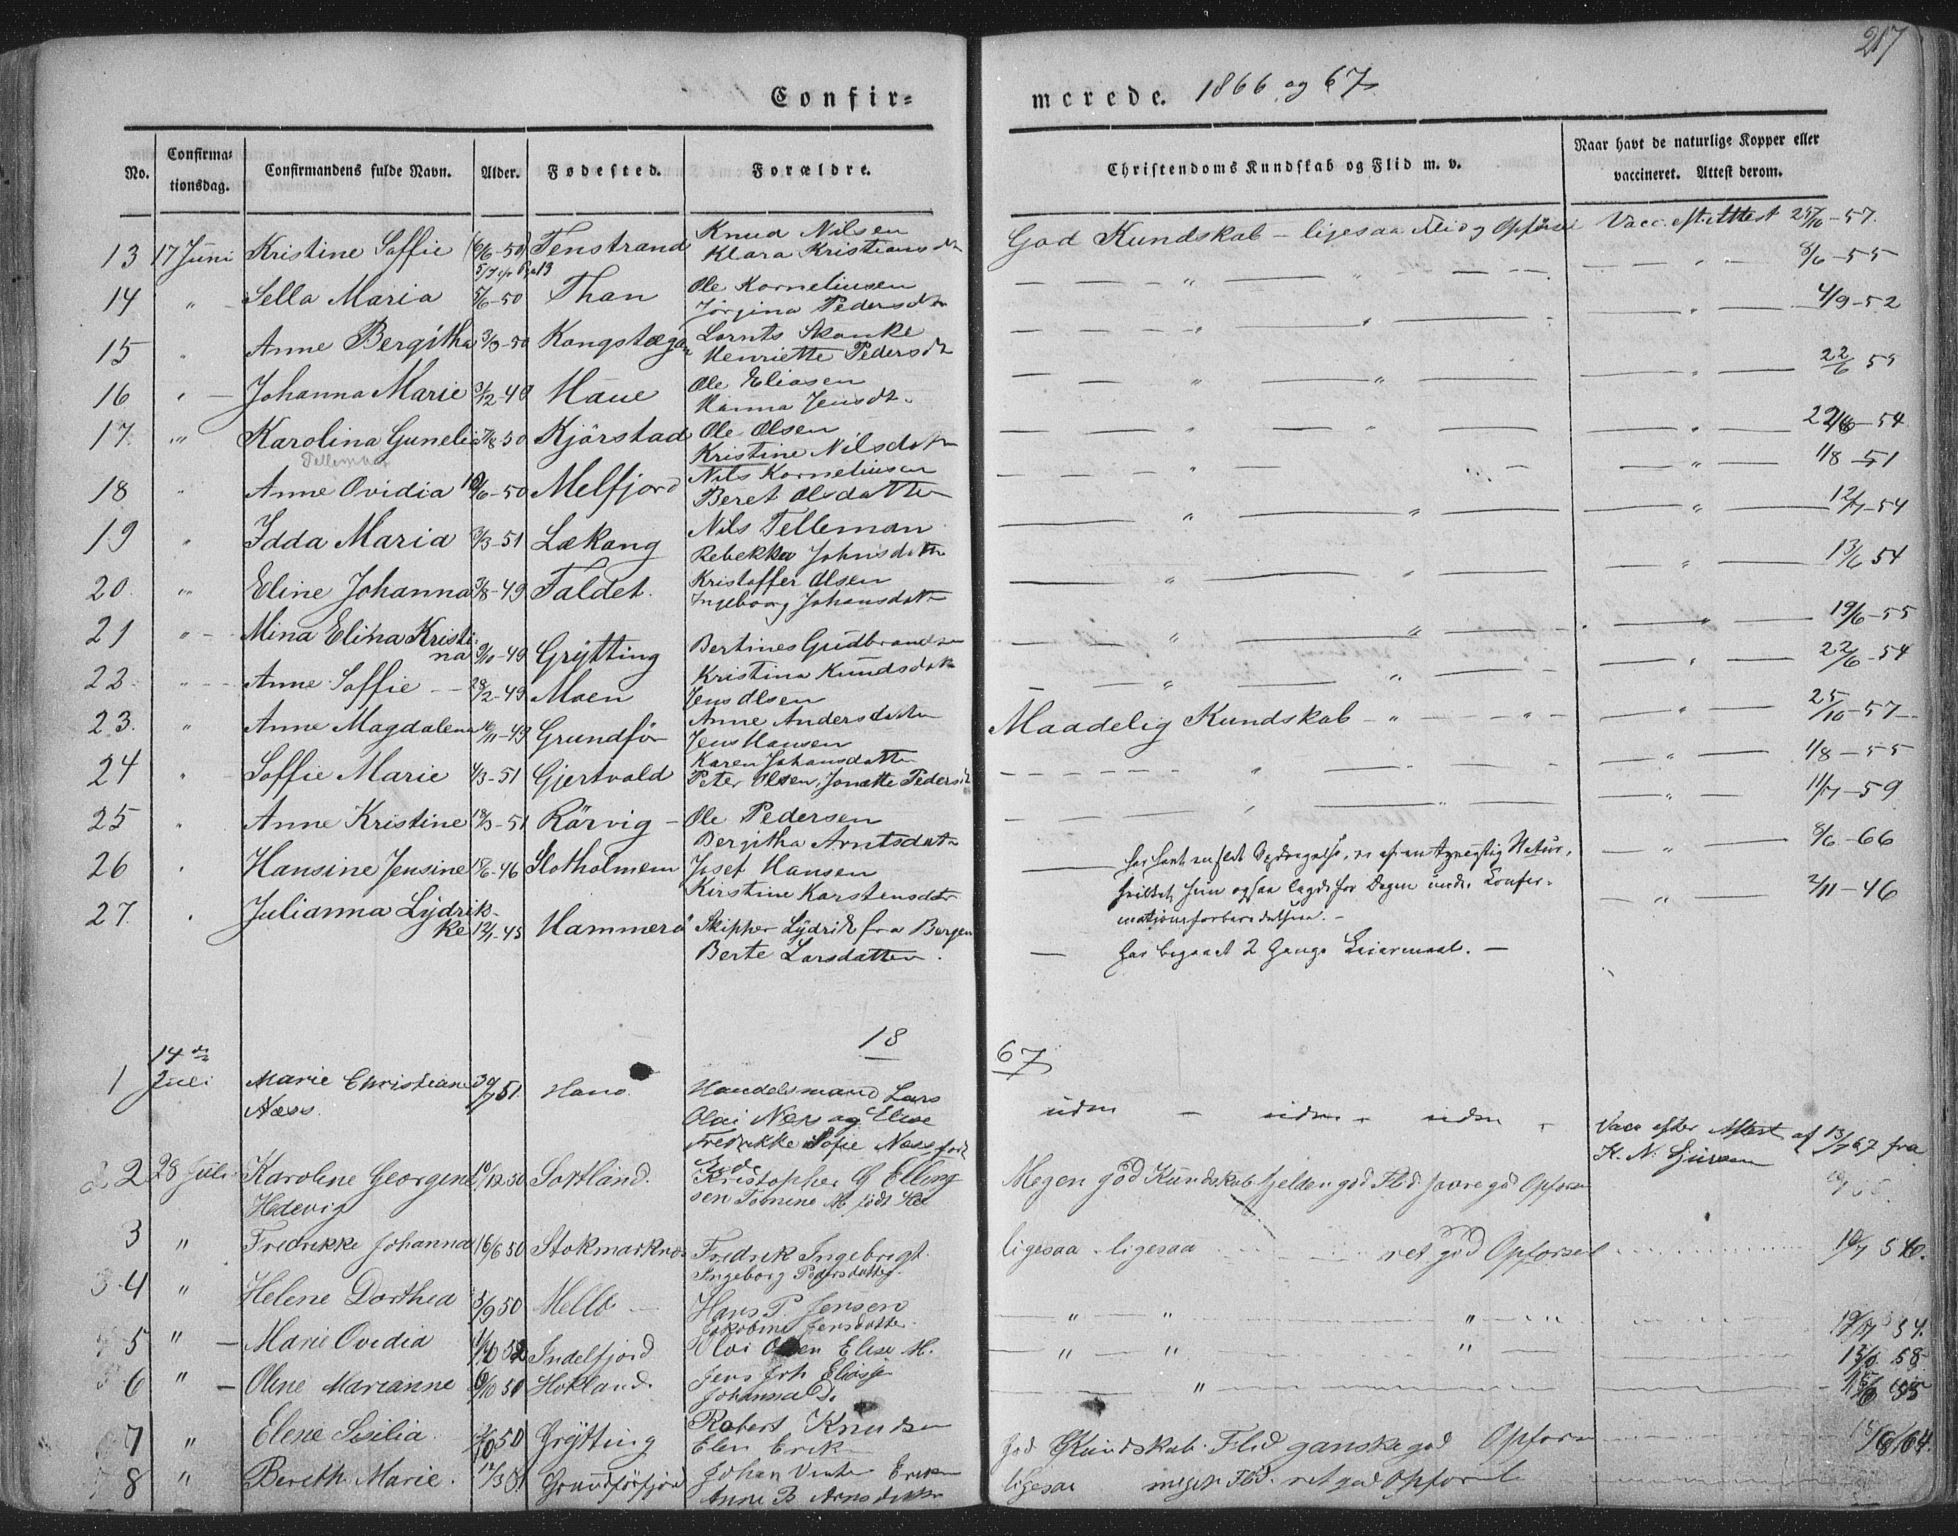 217
Confir= merede. 1866 og 67
No. Confirma=tionsdag. Confirmandens fulde Navn. Alder. Fødested. Forældre. Christendoms Kundskab og Flid m. v. Naar havt de naturlige Kopper eller vaccineret. Attest derom.
13 17 Juni Kristine Soffie 6/6-50 Fenstrand Knud Nilsen
Klara Kristiansdt God Kundskab - ligesaa Flid og Opførsel Vacc. eft. Attest 25/10-57.
14 " Sella Maria 5/6-50 Than Ole Korneliusen
Jörgina Pedersdtr " 8/6-55
15 " Anne Bergitha 3/3-50 Lornts Skanke
Henriette Pedersdt " " 4/9-52
16 " Johanna Marie Haue Ole Eliasen
Hanna Jensdt. " " 22/6
17. " Karolina Gunelia Kjörstad Ole Olsen
Kristine Nilsdatr " " -54
Telleman
18 " Anne Ovidia 10/6-50 Melfjord Nils Korneliusen
Beret Olsdatter " 1/8-51
19 " Idda Maria 3/3-51 Lækang Nils Telleman
Rebekka Johnsdatr " " 12/7-54
20. " Eline Johanna 3/8-49 Faldet. Kristoffer Olsen
Ingeborg Johansdatr " " 13/6 54
21 " Mina Elina Kristi
na 9/10-49 Grÿtting Bertines Gudbrandsen
Kristina Knudsdatr " " 19/6-55
22. " Anne Soffie 28/2-49 Moen Jens Olsen
Anne Andersdatter " 22/6-54
23. " Anne Magdalena 16/11-49 Grundför Jens Hansen
Karen Johansdatter Maadelig Kundskab - " - " 25/10-57
24 " Soffie Marie 4/3-51 Gjertvold Peter Olsen, Jonette Pedersdt " " 1/8-55
25 " Anne Kristine 18/3-51 Rörvig Ole Pedersen
Bergitha Arntsdatr " " 11/7-59
26 " Hansine Jensine 17/6-46 Slotholmem Josef Hansen
Kirstine Karstensdatr " 8/6-66
har havt en slet Opdragelse, er af en Natur,
hvilket hun ogsaa lagde for Dagen under Confir-
mationsforberedelsen. -
27. " Julianna Lÿdrik-
ke 12/1-45 Hammerö Skipper Lÿdrik fra Bergen
Berte Larsdatter. har begaaet 2 Gange Leiermaal. - " 2/11-46
18 67
1 14de Juli Marie Christiane
Næss. 30/7 51. Hans. Handelsmand Lars
Olai Næss og Elise
Fredrikke Sofie Næss født
uden - uden - uden Vacc efter Attest af 13/7 67 fra
K. N.
2 28 Juli Karoline Georgine
Hedevig 10/12 50 Sortland. Kristopher G Elling
sen Tobnine M født Megen god Kundskab god Flid god Opførsel
3 " Fredrikke Johanna 16/6 50 Stokmarknes Fredrik Ingebrigt.
Ingeborg Pedersdatter. ligesaa - ligesaa ret god Opførsel
4 " Helene Dorthea 5/9 50 Melbo Hans P. Jensen
Jakobine Jensdatter. " " "
5 " Marie Ovidia Indelfjord Olai Olsen Elise M. " " " 58
6 " Olene Marianne Hokland. Jens Joh Elias
Johanna D. "
7 " Elene Sesilia. Grÿtting Robert Knudsen
Elen Erik God Kundskab. Flid ganske god Opførsel
8 " Bereth Marie. 17/3 51 Grundförfjord Johan Erik
Anne B Arnsdatter ligesaa megen Flid. ret god Opførsel